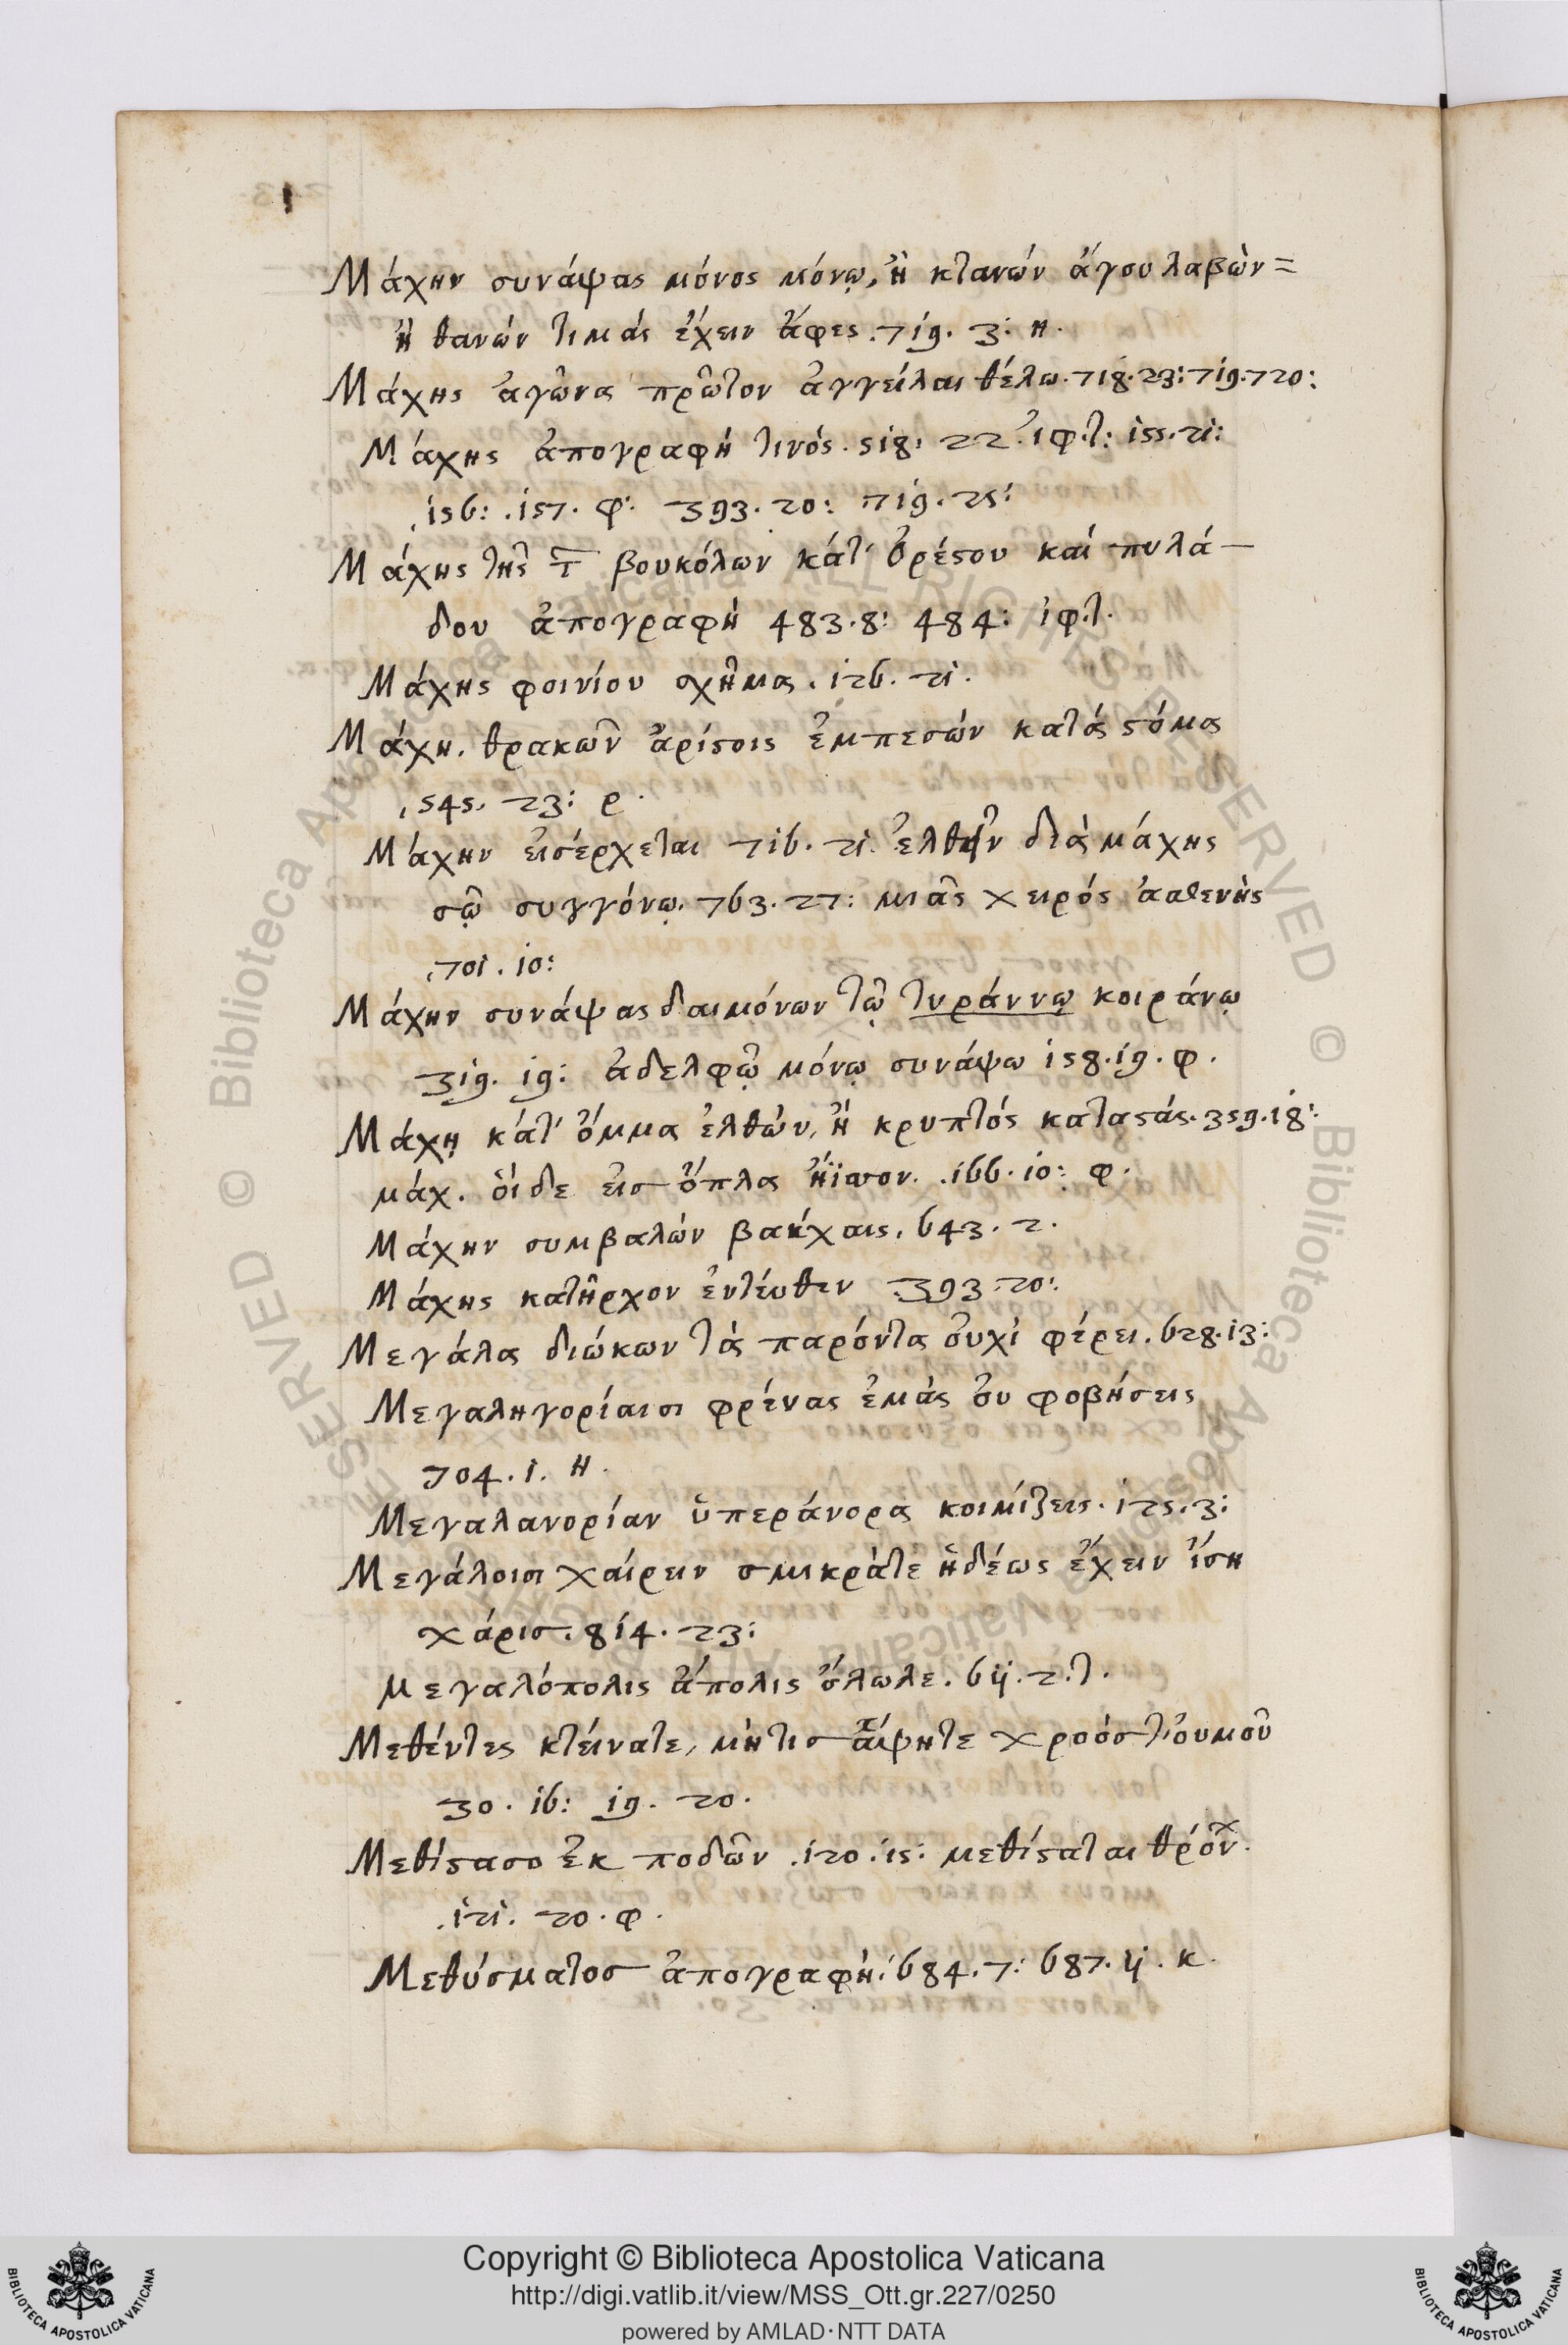 Μάχην συνάψας μόνος μόνῳ, ἢ κτανών ἄγου λαβὼν=
ἢ θανών τιμάς ἔχειν ἄφες. 719. 3: Η.
Μάχης ἀγῶνα πρῶτον ἀγγεῖλαι θέλω. 718. 23: 719. 720:
Μάχης ἀπογραφή τινός. 518. 22. ἰφ.τ: 155. 21:
156: .157. φ: 393. 20: 719. 25:
Μάχης τῆς τ̄ βουκόλων κάτ' ὀρέϛου καί πυλά–
δου ἀπογραφή 483.8: 484: ἰφ.τ.
Μάχης φοινίου σχῆμα. 126. 21.
Μάχη. θρακῶν ἀρίϛοις ἐμπεσών κατά ϛόμα
545. 23: ρ.
Μάχην εἰσέρχεται 716. 21. ἐλθεῖν διὰ μάχης
σῷ συγγόνῳ. 763. 27: μιᾶς χειρός ἀσθενὴς
701. 10:
Μάχην συνάψας δαιμόνων τῷ τυράννῳ κοιράνῳ
319. 19: ἀδελφῷ μόνῳ συνάψω 158. 19. φ.
Μάχῃ κάτ' ὄμμα ἐλθών, ἢ κρυπτός καταϛάς. 359. 18:
μάχ. οἵδε εἰσ ὅπλα ἤϊσσον. .166. 10: φ.
Μάχην συμβαλών βακχαις. 643. 2.
Μάχης κατῆρχον ἐντεῦθεν 393. 20:
Μεγάλα διώκων τὰ παρόντα οὐχὶ φέρει. 628. 13:
Μεγαληγορίαισι φρένας ἐμὰς οὐ φοβήσεις
704. 1. Η.
Μεγαλανορίαν ὑπεράνορα κοιμίζεις. 125. 3:
Μεγάλοισι χαίρειν σμικρὰτὲ ἡδέως ἔχειν ἴση
χάρισ. 814. 23:
Μεγαλόπολις ἄπολις ὄλωλε. 611. 2. τ.
Μεθέντες κτείνατε, μήτισ χροόσ τοὐμοῦ
30. 16: 19. 20.
Μεθίϛασο ἐκ ποδῶν .120. 15: μεθίϛαται θρόν.
.121. 20. φ.
Μεθύσματοσ ἀπογραφή. 684. 7: 687. 11. κ.
Copyright © Biblioteca Apostolica Vaticana
http://digi.vatlib.it/view/MSS_Ott.gr.227/0250
powered by AMLAD·NTT DATA